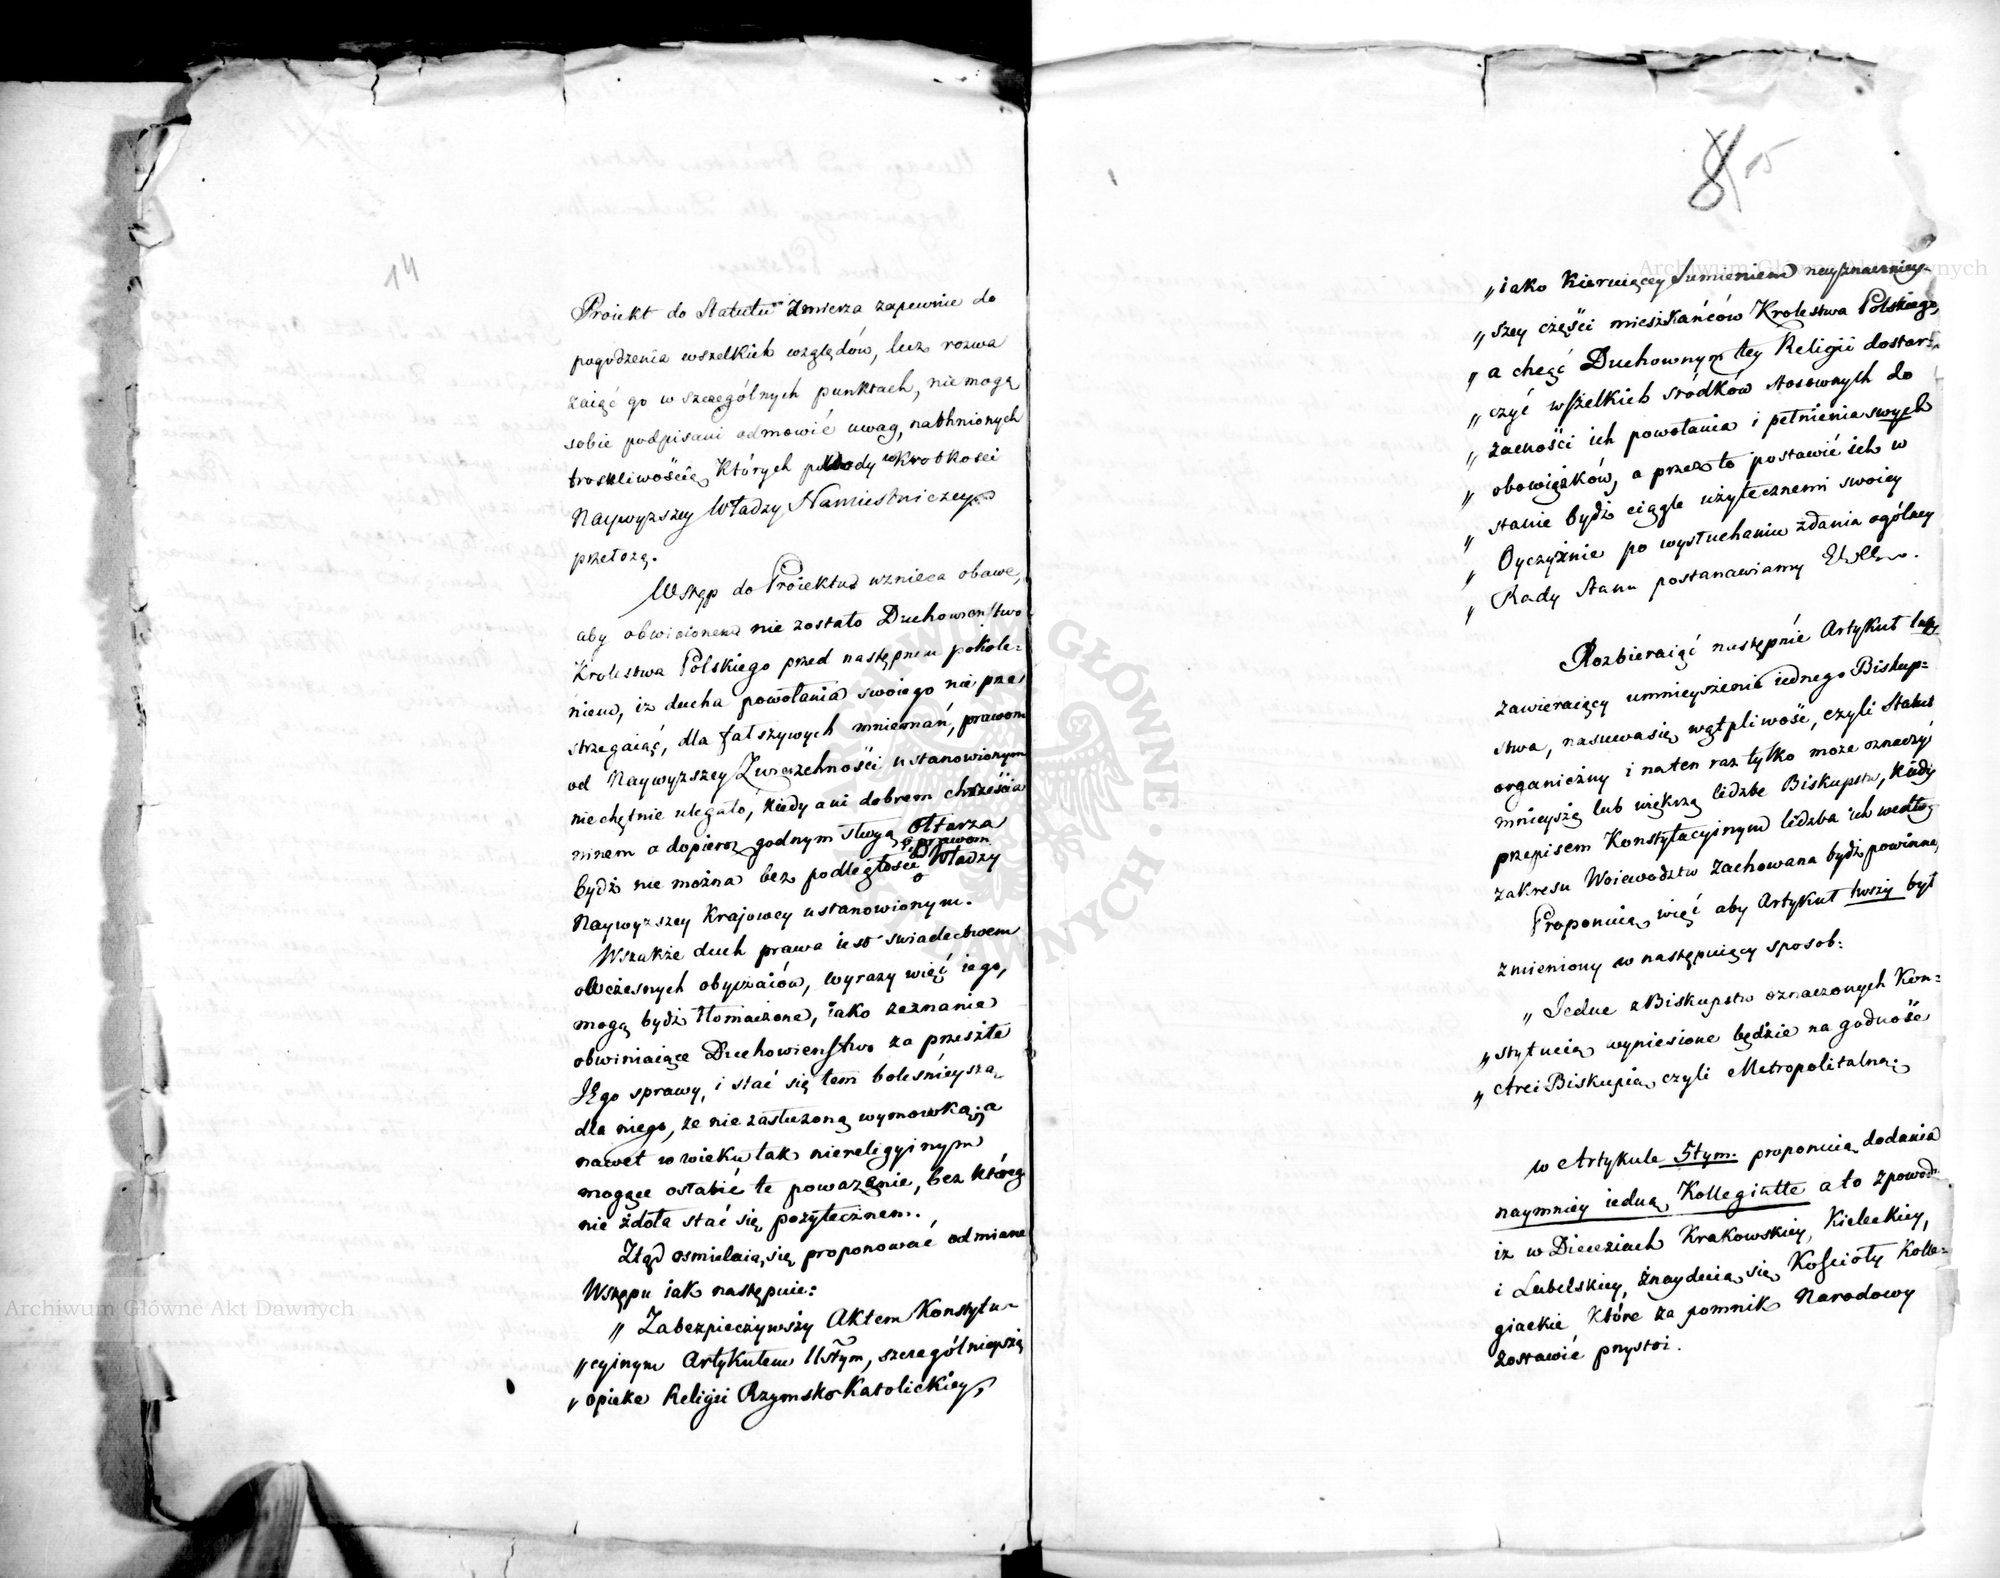 14
Proiekt do Statutu zmierza zapewnie do
pogodzenia wszelkich względów, lecz rozwa
żaiąc go w szczególnych punktach, niemogą
sobie podpisani odmowić uwag, natchnionych
troskliwością, których powody w krotkosci
Naywyższey Władzy Namiestniczey
przełożą.
Wstęp do Proiektu wznieca obawę,
aby obwinionem nie zostało Duchowienstwo
Krolestwa Polskiego przed następnem pokole=
niem, iż ducha powołania swoiego nie prze
strzegaiąc, dla fałszywych mniemań, prawom
od Naywyższey Zwierzchności ustanowionym
niechętnie ulegało, kiedy ani dobrem chrześcia
ninem a dopieroż godnym sługą Ołtarza
bydź nie można bez podległości prawom od Władzy
Naywyższey Krajowey ustanowionym.
Wszakże duch prawa iest swiadectwem
obczesnych obyczaiów, wyrazy więc iego,
mogą bydź tłomaczone, iako zeznanie
obwiniaiące Duchowienstwo za przeszłe
Jego sprawy, i stać się tem boleśnieyszą
dla niego, że nie zasłużoną wymowką; a
nawet w wieku tak niereligyinym
mogące osłabić te poważanie, bez którego
nie zdoła stać się pożytecznem.
Ztąd osmielaią się proponować odmianę
Wstępu iak następuie:
„ Zabezpieczywszy Aktem Konstytu=
„cyinym Artykułem 11stym, szczególnieyszą
„ opiekę Religii Rzymsko Katolickiey,
8 15
„iako Kieruiącey Sumieniem nayznaczniey=
„ szey części mieszkańców Krolestwa Polskiego,
„ a chcąc Duchownym tey Religii dostar=
„ czyć wszelkich srodków stosownych do
„ zacności ich powołania i pełnienia swych
„ obowiązków, a przez to postawić ich w
„ stanie bydź ciągle użytecznemi swoiey
„ Oyczyźnie po wysłuchaniu zdania ogólney
„ Rady Stanu postanawiamy
Rozbieraiąc następnie Artykuł 1szy
zawieraiący umnieyszenie iednego Biskup=
stwa, nasuwa się wątpliwość, czyli Statut
organiczny i na ten raz tylko może oznaczyć
mnieyszą lub większą liczbę Biskupstw, kiedy
przepisem Konstytucyinym liczba ich według
zakresu Woiewodztw zachowana bydź powinna,
Proponuią więc aby Artykuł 1wszy był
zmieniony w następuiący sposob:
„ Jedne z Biskupstw oznaczonych Kon=
„ stytucią wyniesione będzie na godność
„ Arci Biskupią czyli Metropolitalną.
w Artykule 5tym. proponuią dodania
naymniey iedną Kollegiatte a to z powodu
iż w Dieceziach Krakowskiey, Kieleckiey,
i Lubelskiey, znayduią się Kościoły Kolle=
giackie które za pomnik Narodowy
zostawić przystoi.
Archiwum Główne Akt Dawnych
Archiwum Główne Akt Dawnych
ARCHIWUM GŁÓWNE AKT DAWNYCH